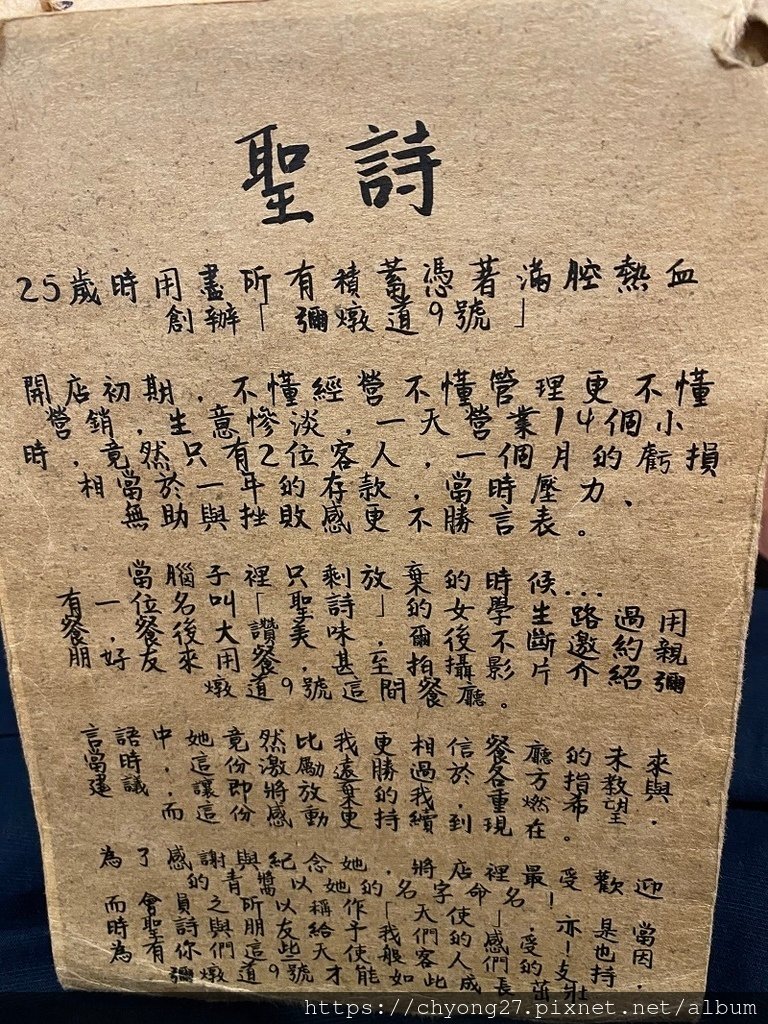 聖詩
25歲時用盡所有積蓄憑著滿腔熱血
創辦「彌燉道9號」
開店初期,不懂經營不懂管理更不懂
營銷,生意慘淡,一天營業14個小
時,竟然只有2位客人,一個月的虧損
相當於一年的存款,當時壓力、
無助與挫敗感更不勝言表。
當腦子裡只剩放棄的時候...
有一位名叫「聖詩」的女學生路過用
餐,餐後大讚美味,爾後不斷邀約親
朋好友來用餐,甚至拍攝影片介紹彌
燉道9號這間餐廳。
言語中,她竟然比我更相信餐廳的未來,
當時這份激勵遠勝過於各方指教與
建議,讓即將放棄的我,重燃希望。
而這份感動更持續到現在。
為了感謝與紀念她,將店裡最受歡迎
的青醬以她的名字命名!
而會員之所以稱作「天使」亦是當
時聖詩與朋友給予我們的感受!也因
為有你們這些天使般的客人們的支持,
彌燉道9號才能如此成長茁壯
https://chyong27.pixnet.net/album